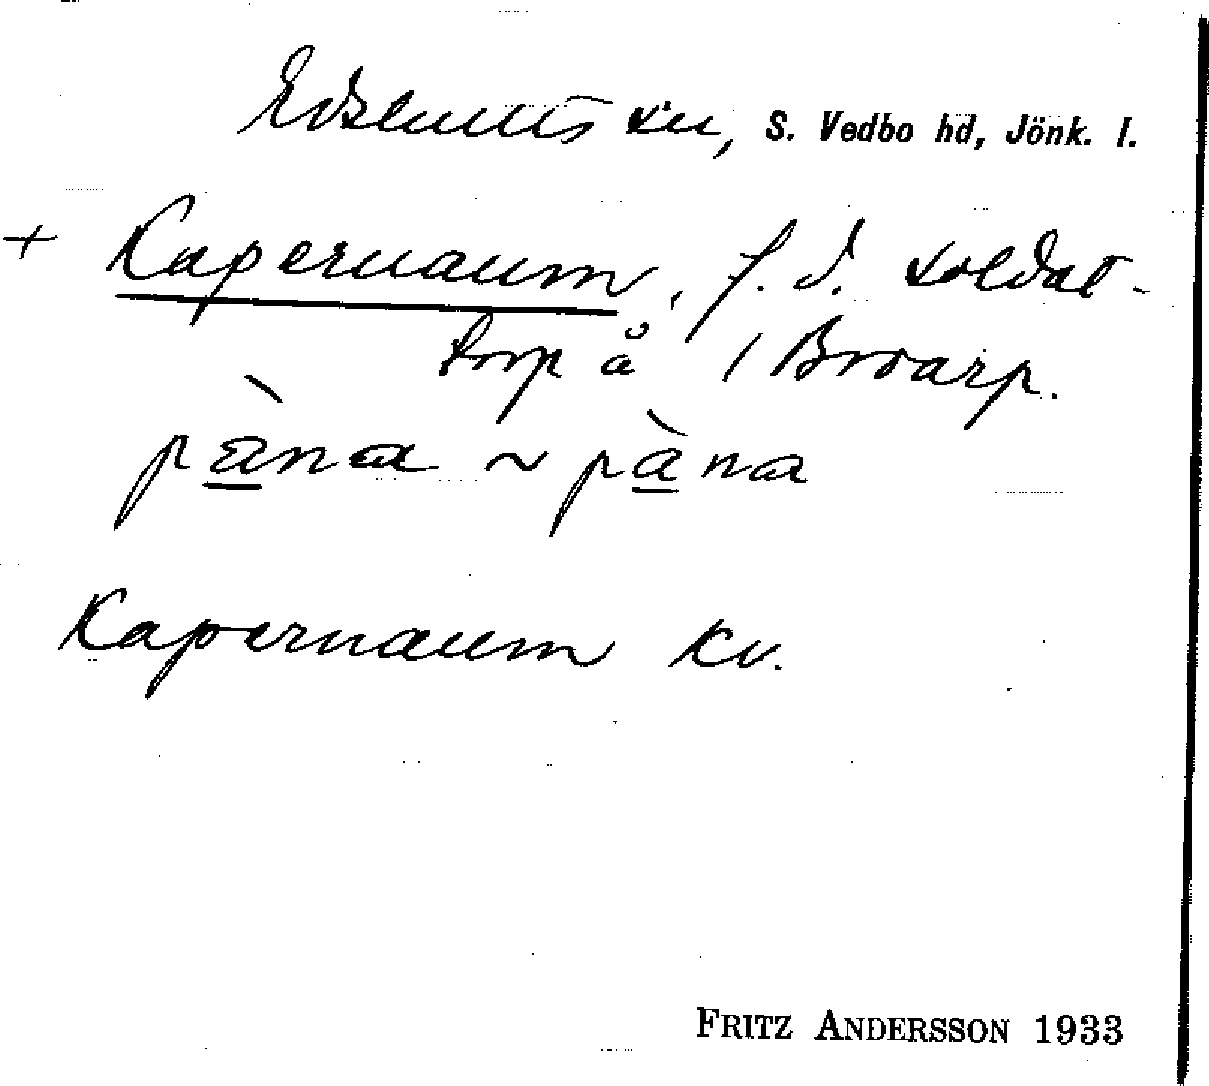 Edshults sn, S. Vedbo hd, Jönk. l.
+ Kapernaum, f. d. soldat-
torp å /Broarp.
pàna ~ pàna
Kapernaum kv.
FRITZ ANDERSSON 1933